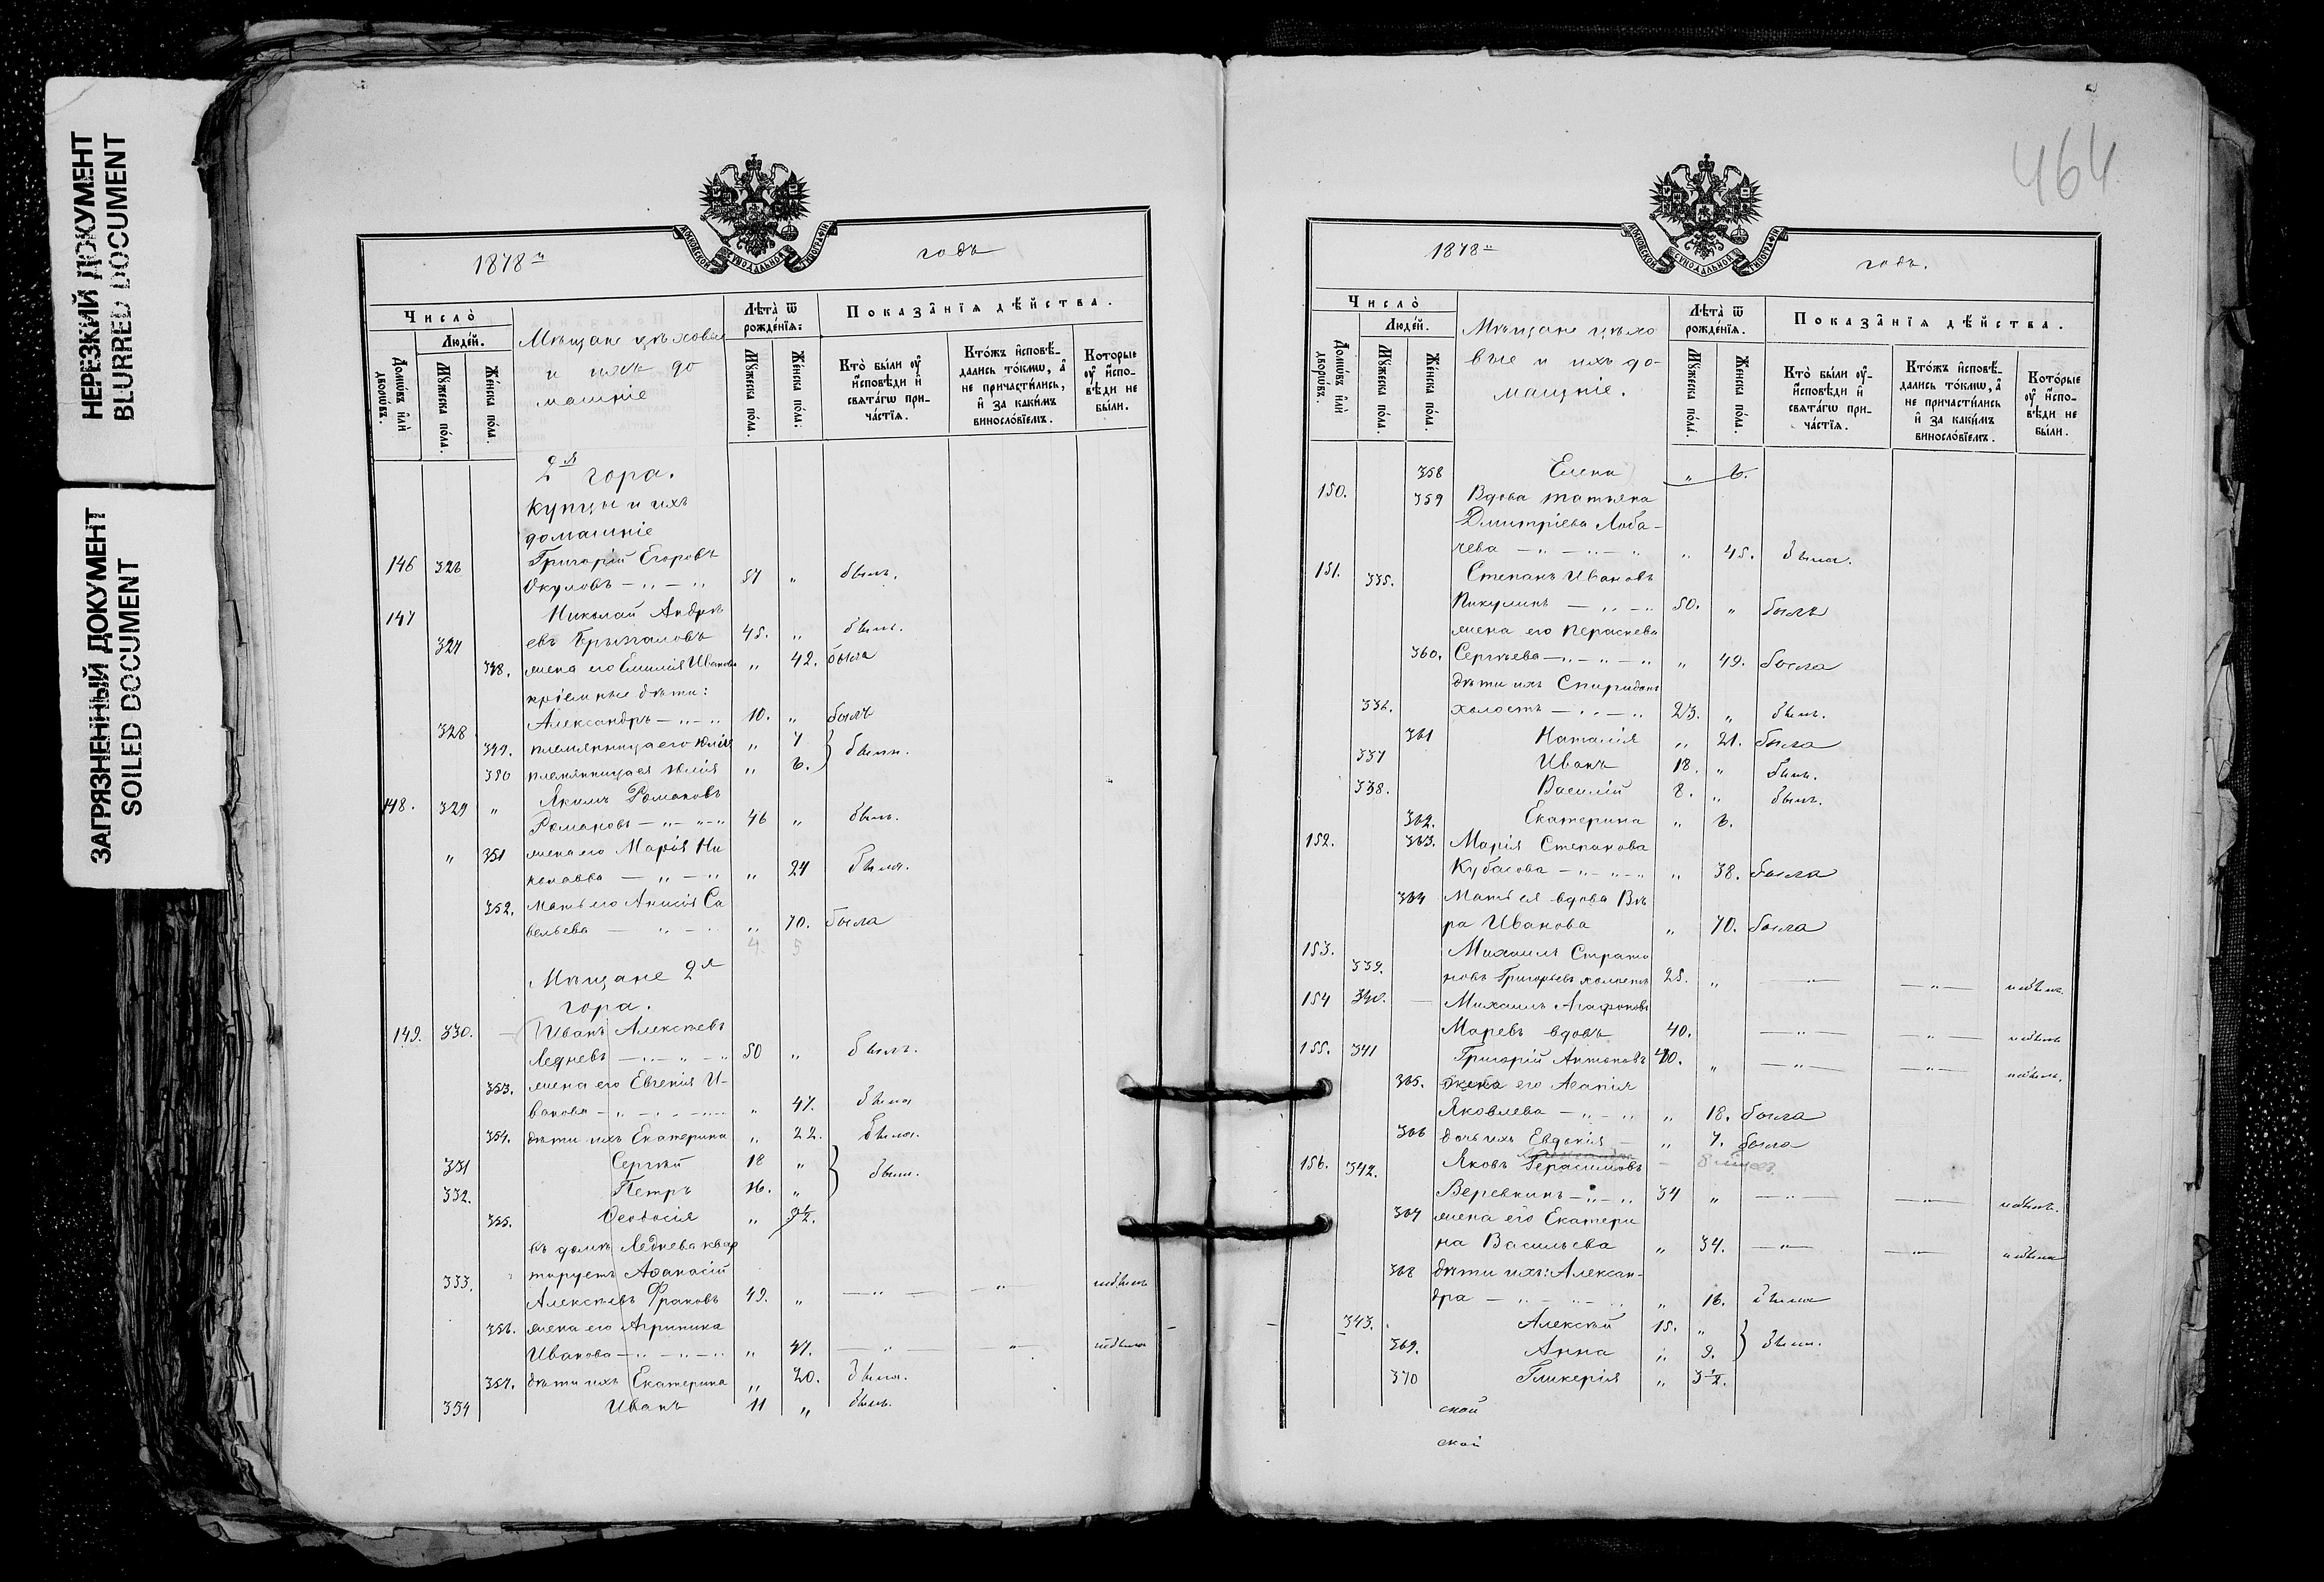 НЕРЕЗКИЙ ДОКУМЕНТ
BLURRED DOCUMENT
ЗАГРЯЗНЕННЫЙ ДОКУМЕНТ
SOILED DOCUMENT
МОСКОВСКОЙ СѴНОДАЛЬНОЙ ТИПОГРАФІИ
1878 годъ
Число
Людей.
Домовъ или дворовъ.
Мужеска пола.
Женска пола.
Мѣщане цѣховые
и ихъ до
машніе
Лѣта ѿ рожденія:
Мужеска пола.
Женска пола.
Показанія дѣйства.
Кто были у исповѣди и святаго причастія.
Ктожъ исповѣдались токмо, а не причастились, и за какимъ винословіемъ.
Которые у исповѣди не были.
2я гора.
Купцы и ихъ
домашніе
146 326 Григорій Егоровъ
Окуловъ — „ — „ 57 „ былъ.
147 Николай Андре
327 евъ Брызгаловъ 45. „ былъ.
348. жена его Емилія Иванова „ 42. была
пріемные дѣти:
328 Александръ — „ — „ 10. „ былъ
349. племянница его Юлія „ 7 } были.
350 племянница ея Юлія „ 6.
148. 329 „ Якимъ Романовъ
Романовъ — „ — „ — „ 46 „ былъ.
„ 351 жена его Марія Ни
колаева — „ — „ „ 24 была.
352. мать его Анисія Са
вельева — „ — „ „ 70. была
4. 5
Мѣщане 2я
гора.
149. 330. Иванъ Алексѣевъ
Ледневъ — „ — „ — „ 50 „ былъ.
353. жена его Евгенія И-
ванова — „ — „ — „ „ 47. была
354. дѣти ихъ Екатерина „ 22. была.
331 Сергѣй 18 „ } были.
332. Петръ 16. „
355. Ѳеодосія „ 9½.
въ домѣ Леднева квар
333. тируетъ Аѳанасій
Алексѣевъ Фраковъ 49. „ — „ — — „ — небылъ
356. жена его Агрипина
Иванова — „ — „ — „ „ 47. — „ — — „ — небыла
357. дѣти ихъ Екатерина „ 20. была.
334 Иванъ 11 „ былъ.
464
МОСКОВСКОЙ СѴНОДАЛЬНОЙ ТИПОГРАФІИ
1878 годъ.
Число
Людей.
Домовъ или дворовъ.
Мужеска пола.
Женска пола.
Мѣщане цѣхо
вые и ихъ до-
машніе.
Лѣта ѿ рожденія.
Мужеска пола.
Женска пола.
Показанія дѣйства.
Кто были у исповѣди и святаго причастія.
Ктожъ исповѣдались токмо, а не причастились и за какимъ винословіемъ.
Которые у исповѣди не были.
358 Елена „ 6.
150. 359 Вдова Татьяна
Дмитріева Лоба-
чева — „ — „ — „ „ 45. была.
151. 335. Степанъ Ивановъ
Пикулинъ — „ — „ 50. „ былъ
жена его Параскева
360. Сергѣева — „ — „ — „ „ 49. была
дѣти ихъ Спиридонъ
336. холостъ — „ — „ 23. „ былъ.
361 Наталія „ 21. была
337 Иванъ 18. „ былъ.
338. Василій 8. „ былъ.
362. Екатерина „ 6.
152. 363. Марія Степанова
Кубасова — „ — „ — „ „ 38. была
364 Мать ея вдова Вѣ
ра Иванова „ 70. была
153. Михаилъ Страто
339. новъ Григорьевъ холостъ 25. „ — „ — — „ — небылъ.
154 340. — Михаилъ Агафоновъ
Маревъ вдовъ 40. — „ — — „ — небылъ
155. 341 Григорій Антоновъ 40. „ — „ — — „ — небылъ.
365. жена его Агапія
Яковлева — „ — „ „ 18. была
366 дочь ихъ Евдокія — „ 7. была
156. 342. Яковъ Герасимовъ
Веревкинъ — „ — „ 34 „ — „ — — „ — небылъ.
367 жена его Екатери
на Васильева „ 34. — „ — — „ — небыла
368 дѣти ихъ: Алексан-
дра — „ — „ — „ „ 16. была
343. Алексѣй 15. „ } были.
369. Анна „ 9.
370 Гликерія „ 3½.
ской
ской